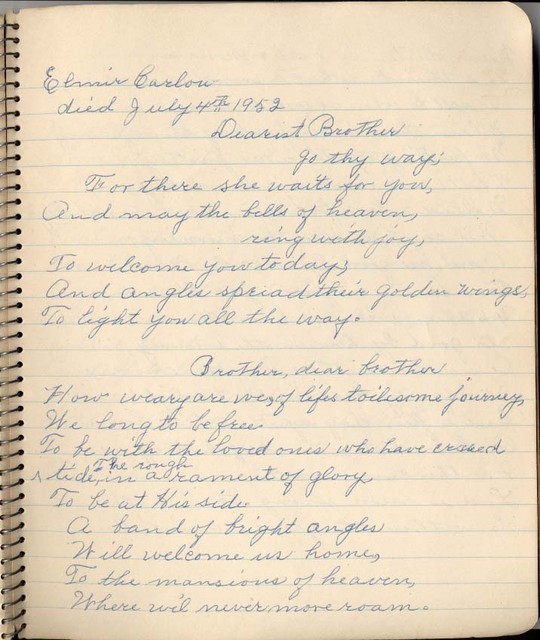 Elmir Carlow
died July 4th 1952
Dearist Brother
go thy way;
For there she waits for you,
And may the bells of heaven,
ring with joy,
To welcome you today;
And angles spread their golden wings,
To light you all the way.
Brother, dear brother
How weary are we, of lifes toilesome journey,
We long to be free
To be with the loved ones who have crossed
The rough
^ tide, in a rament of glory
To be at His side
A band of bright angles
Will welcome us home,
To the mansions of heaven,
Where we'l never more roam.